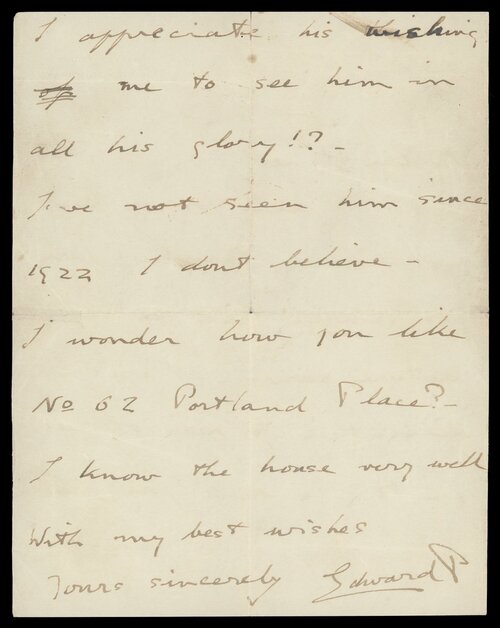 I appreciate his wishing
of me to see him in
all his glory!? -
I've not seen him since
1922 I dont believe -
I wonder how you like
No 62 Portland Place? -
I know the house very well
With my best wishes
Yours sincerely Edward P